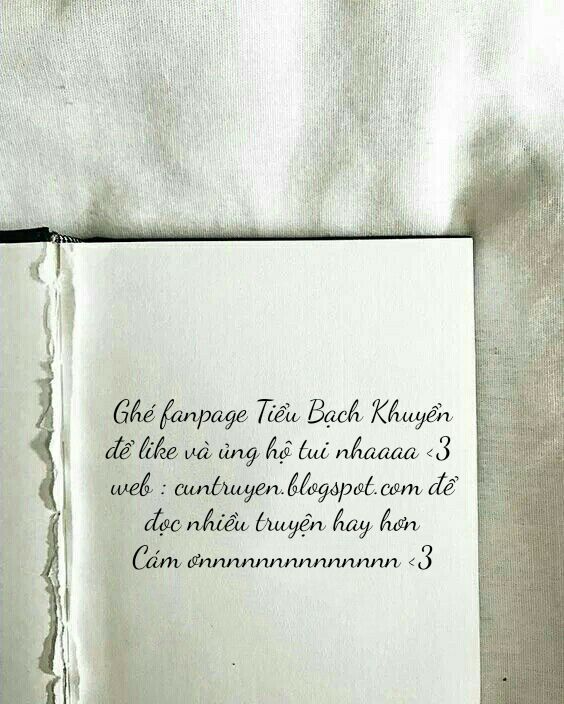 Ghé fanpage Tiểu Bạch Khuyển
để like và ủng hộ tui nhaaaa <3
web : cuntruyen.blogspot.com để
đọc nhiều truyện hay hơn
Cám ơnnnnnnnnnnnnnnn <3